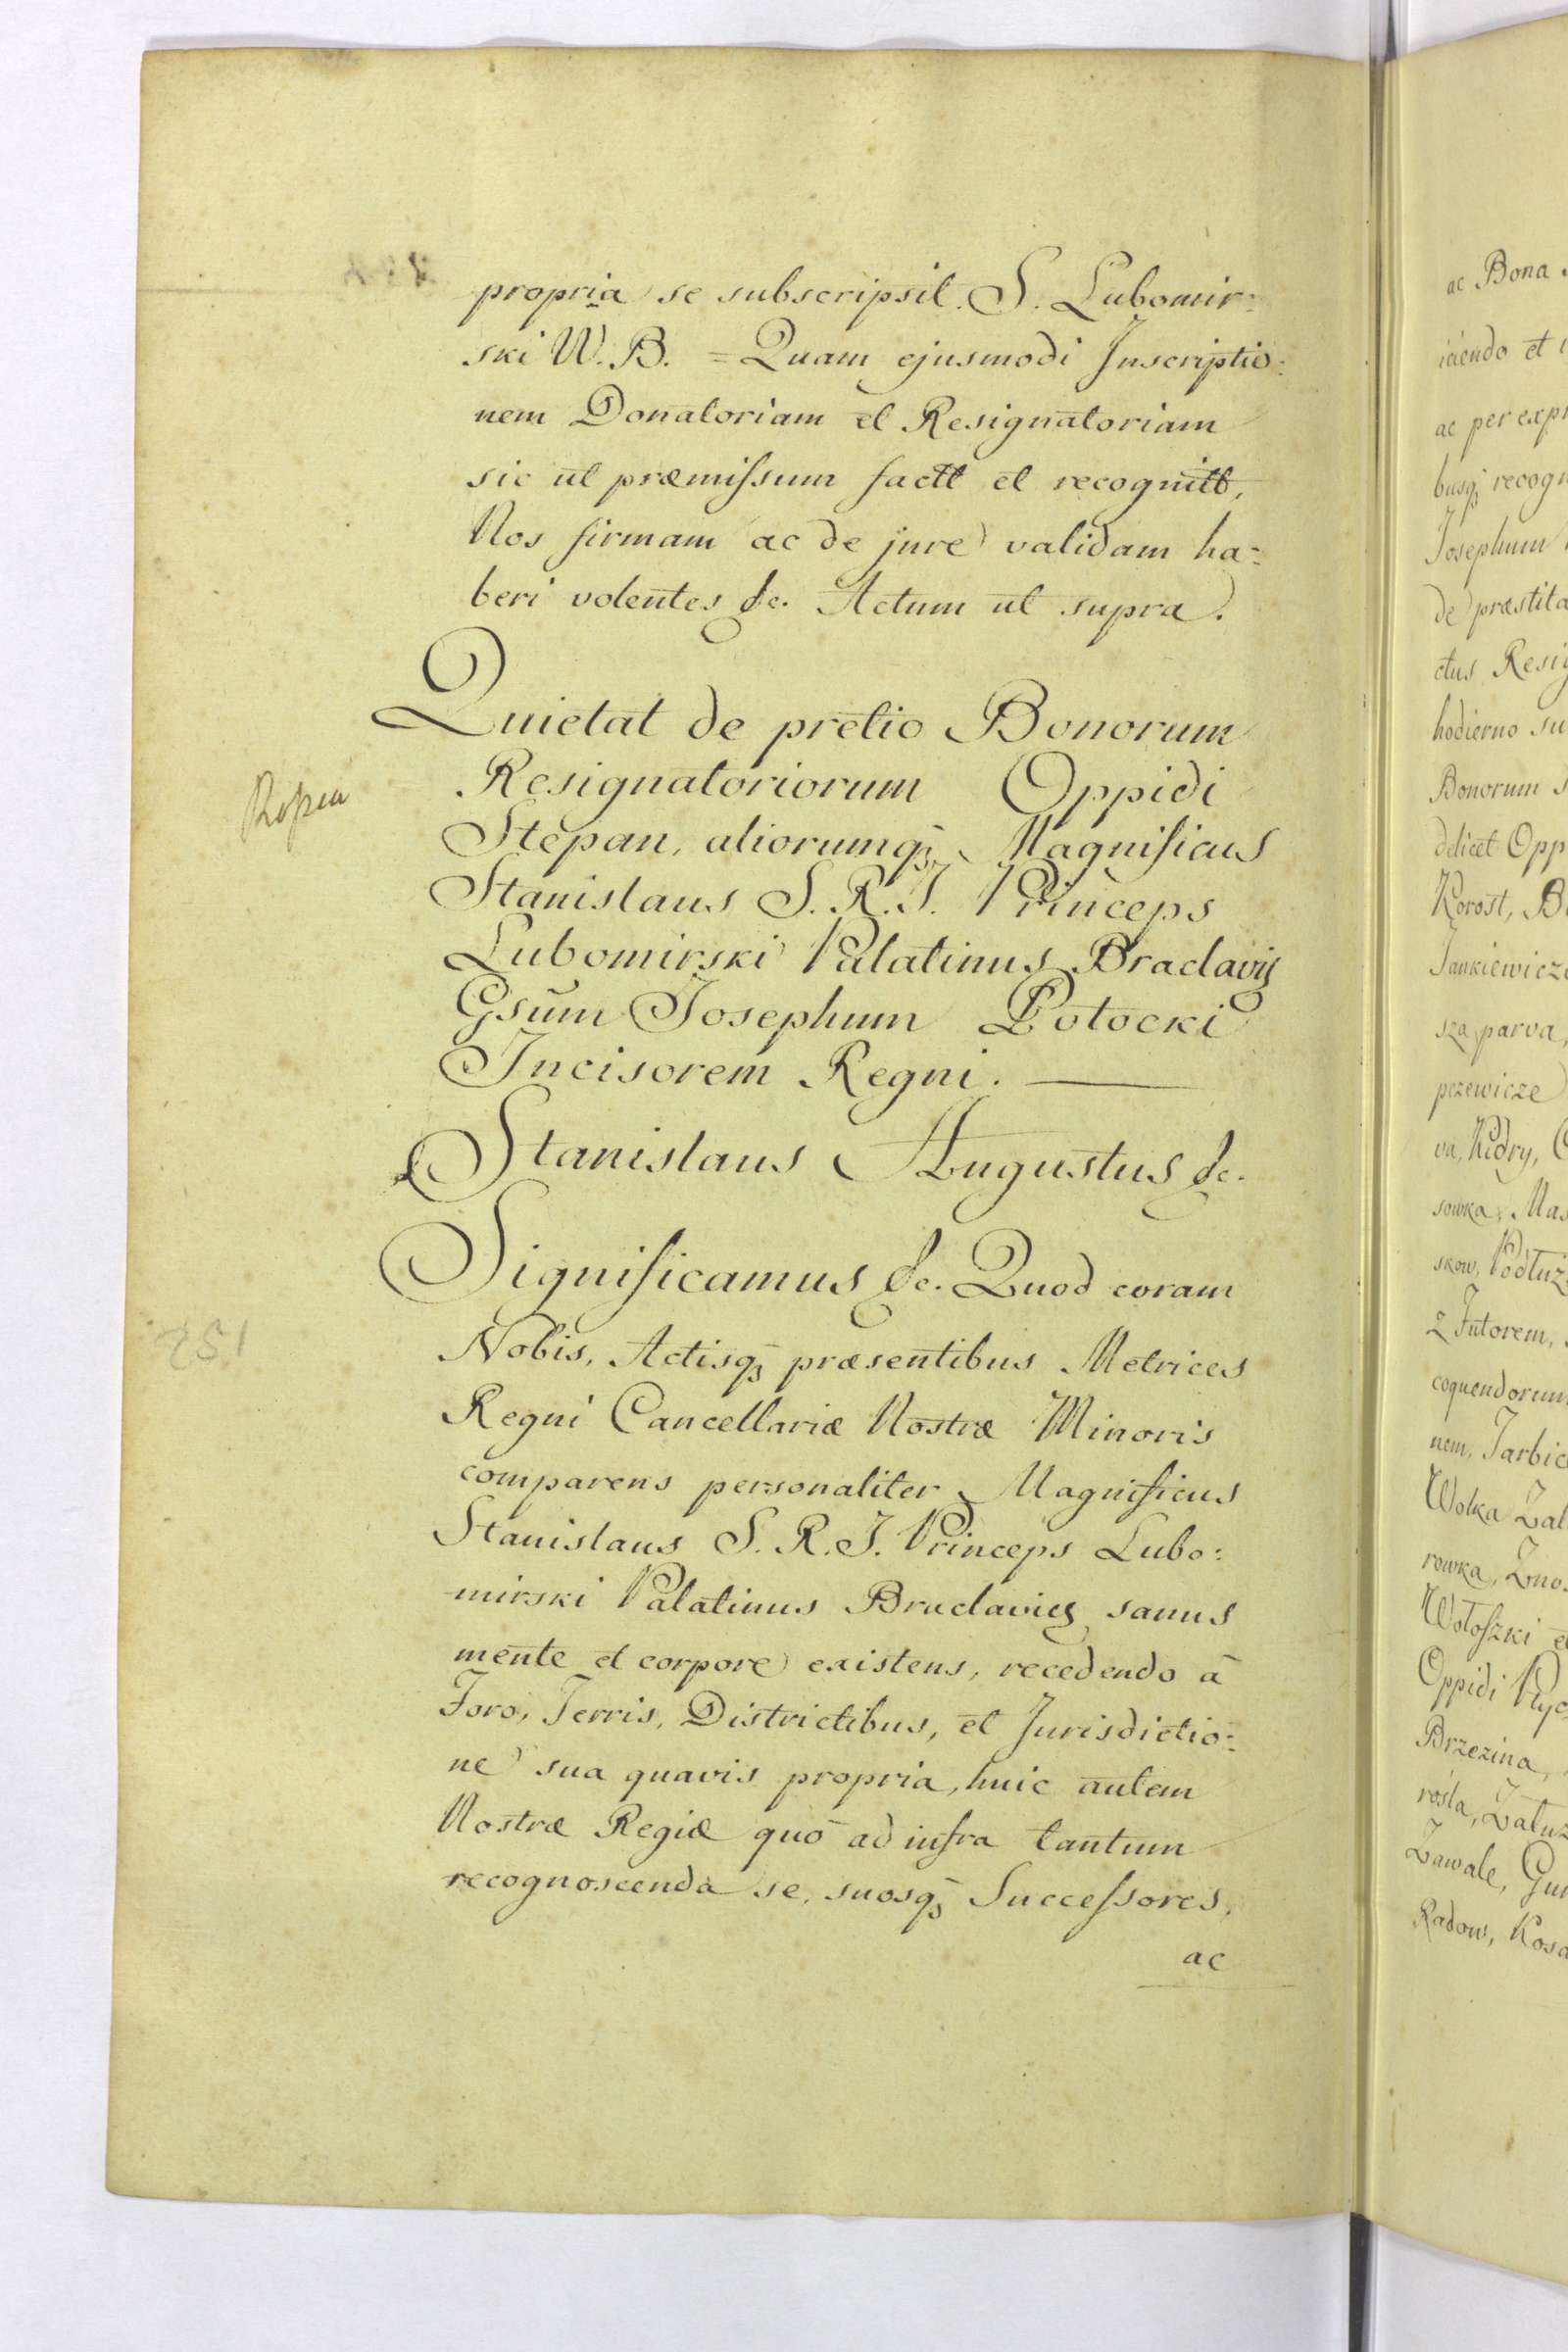 propria se subscripsit. S. Lubomir=
ski W. B. = Quam ejusmodi Inscriptio=
nem Donatoriam et Resignatoriam
sic ut præmiſsum factt et recognitt,
Nos firmam ac de jure validam ha=
beri volentes &c. Actum ut supra.
Quietat de pretio Bonorum
Resignatoriorum Oppidi
Stepan, aliorumq; Magnificus
Stanislaus S. R. I. Princeps
Lubomirski Palatinus Braclavię
Gsum Josephum Potocki
Incisorem Regni.
Stanislaus Augustus &c.
Significamus &c. Quod coram
Nobis, Actisq; præsentibus Metrices
Regni Cancellariæ Nostræ Minoris
comparens personaliter Magnificus
Stanislaus S. R. I. Princeps Lubo=
mirski Palatinus Braclavię sanus
mente et corpore existens, recedendo à
Foro, Terris, Districtibus, et Jurisdictio=
ne sua quavis propria, huic autem
Nostræ Regiæ quò ad infra tantum
recognoscenda se, suosq; Succeſsores,
ac
ac Bona
iciendo et
ac per
busq; recog
Josephum
de præstita
ctus Resig
hodierno su
Bonorum
delicet Opp
Korost, B
Jankiewicz
sza parva,
pczewicze
va, Kidry,
sowka, Mas
skow, Podłuż
z Futorem,
coquendorum
nem, Jarbic
Wolka Zal
rowka, Zno
Wołoſzki e
Oppidi
Brzezina,
rosla, Załuz
Zawale, Gu
Radow, Kosa